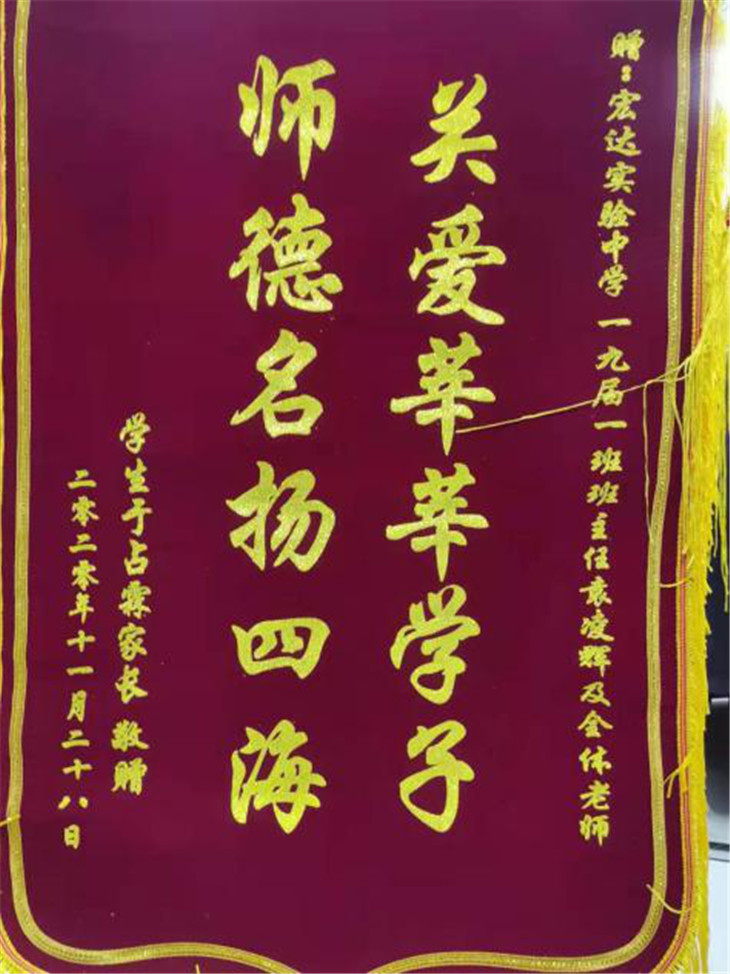 赠：宏达实验中学一九届一班班主任袁凌辉及全体老师
关爱莘莘学子
师德名扬四海
学生于占霖家长 敬赠
二零二零年十一月二十八日